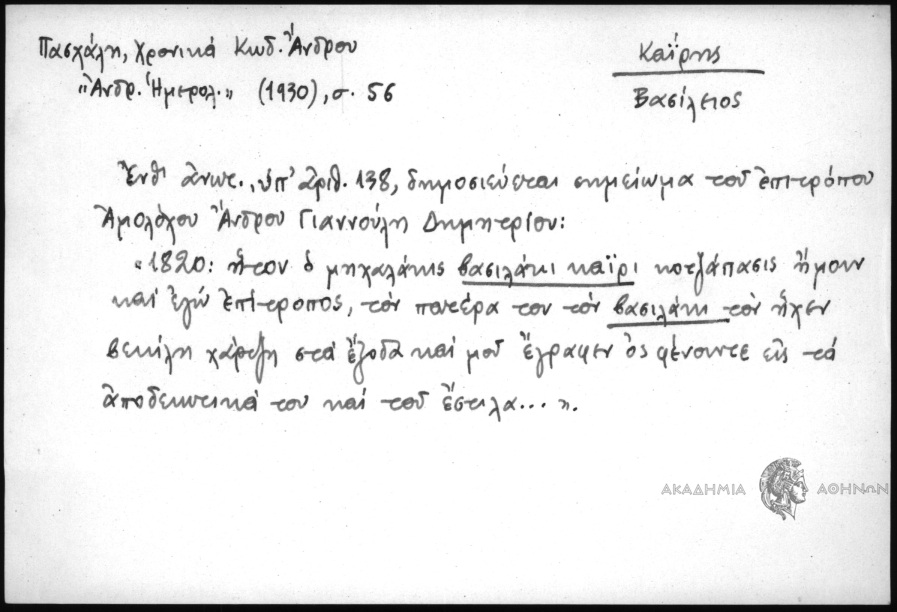 Πασχάλη, Χρονικά Κωδ. Ἄνδρου
"Ἀνδρ. Ἡμερολ." (1930), σ. 56
Καΐρης
Βασίλειος
Ἔνθ' ἀνωτ., ὑπ' ἀριθ. 138, δημοσιεύεται σημείωμα τοῦ ἐπιτρόπου
Ἀμολόχου Ἄνδρου Γιαννούλη Δημητρίου:
"1820: ἦτον ὁ μηχαλάκης βασιλάκι καΐρι κοτζάπασις ἤμουν
καί ἐγώ ἐπίτροπος, τόν πατέρα του τόν βασιλάκη τόν ἦχεν
βεκίλη χάρτζη στά ἔξοδα καί μοῦ ἔγραψεν ὁς φένοντε εἰς τά
ἀποδεικτικά του καί τοῦ ἔστιλα...".
ΑΚΑΔΗΜΙΑ ΑΘΗΝΩΝ